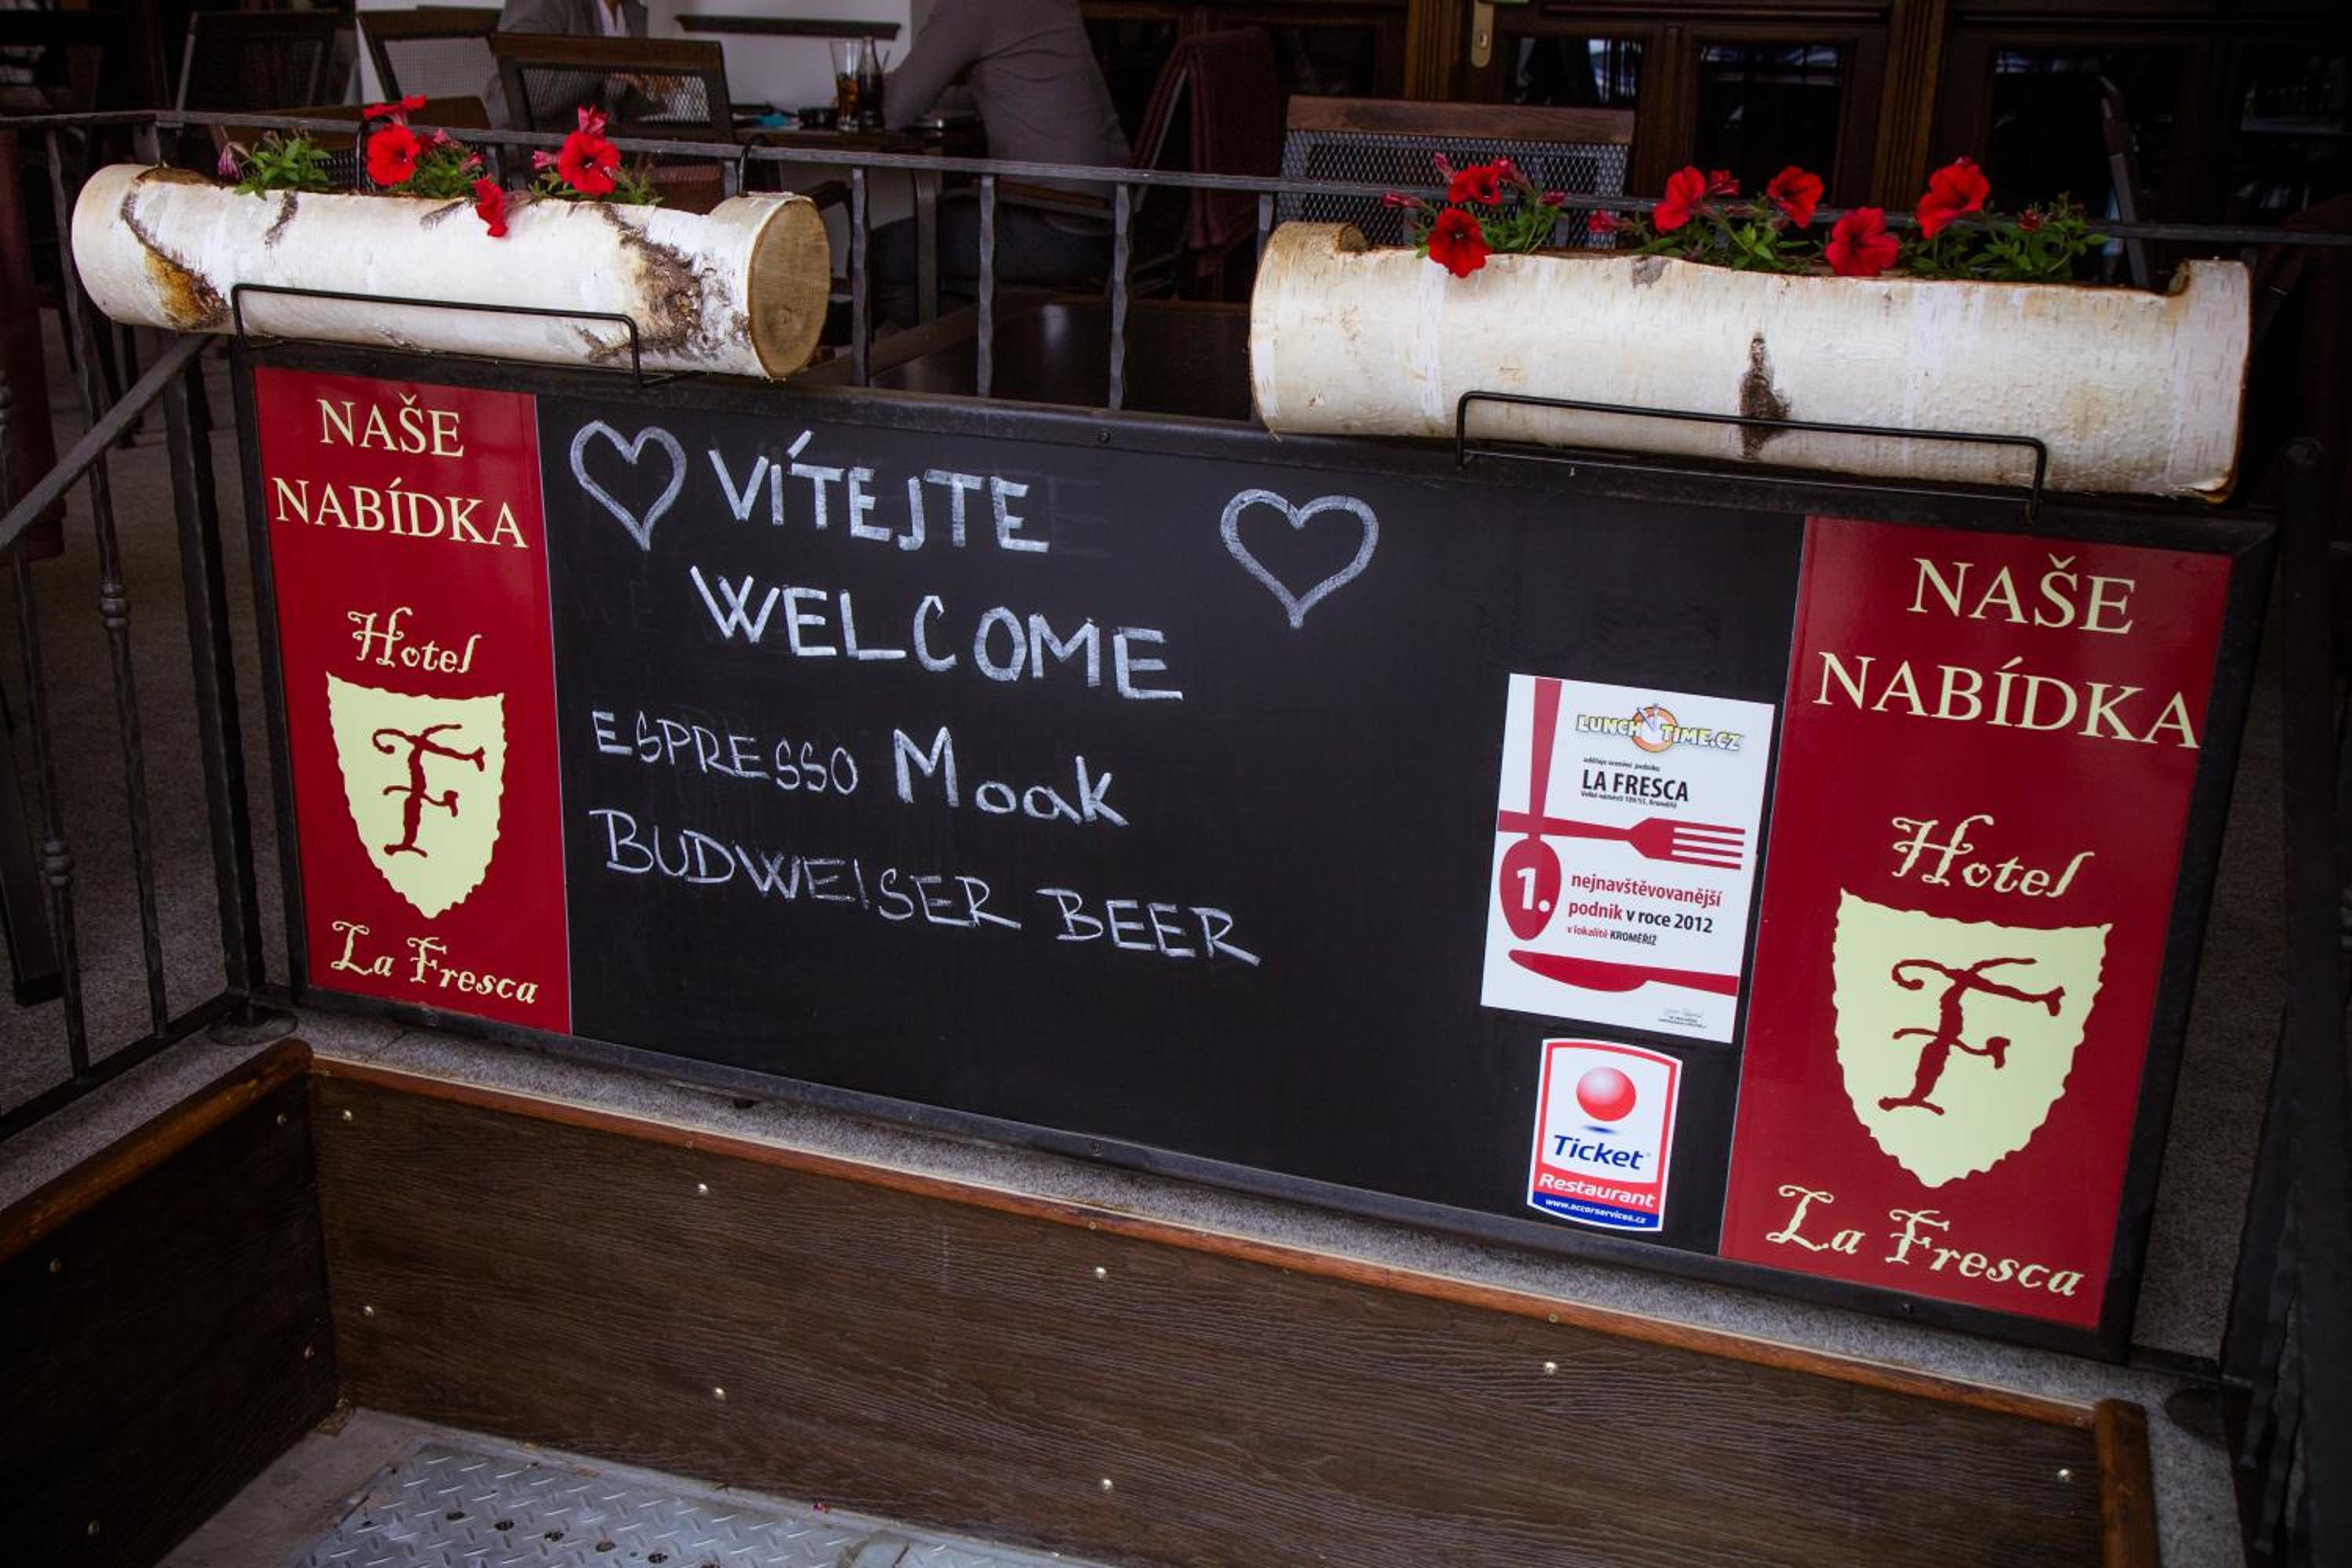 NAŠE
NABÍDKA
Hotel
F
La Fresca
VÍTEJTE
WELCOME
ESPRESSO Moak
BUDWEISER BEER
LUNCHTIME.CZ
uděluje ocenění podniku
LA FRESCA
Velké náměstí 109/55, Kroměříž
1.
nejnavštěvovanější
podnik v roce 2012
v lokalitě KROMĚŘÍŽ
Ticket
Restaurant
www.accorservices.cz
NAŠE
NABÍDKA
Hotel
F
La Fresca